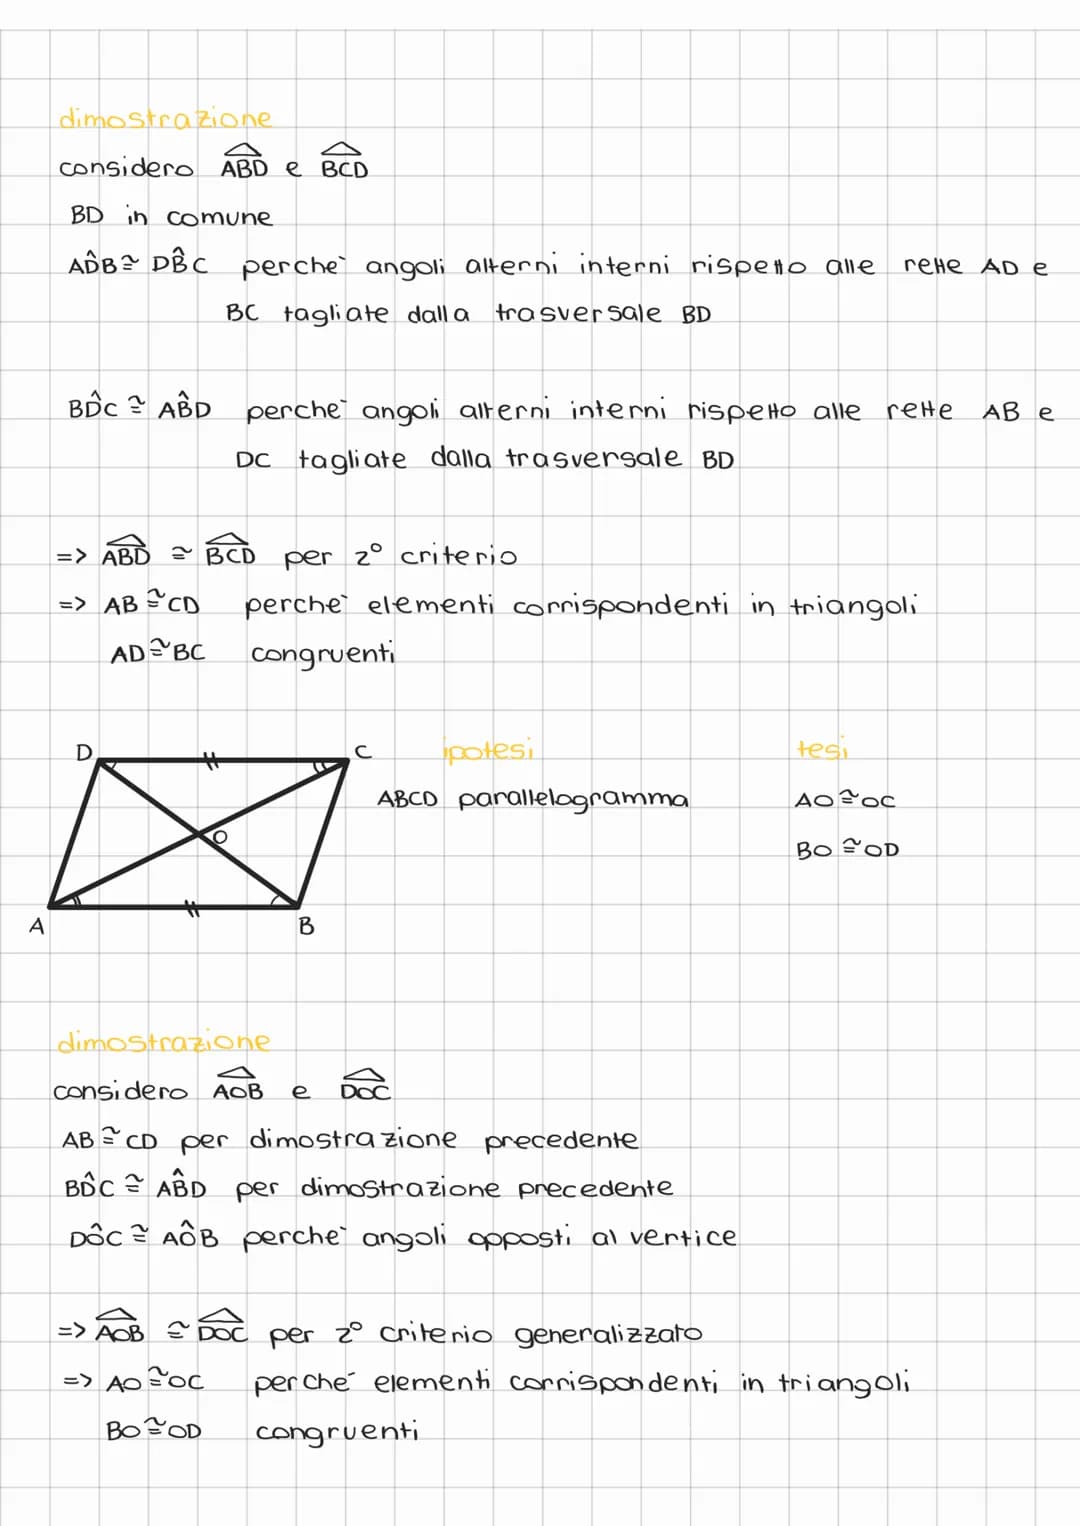 dimostrazione
considero ABD e BCD
BD in comune
AD̂B ≅ DB̂C perche` angoli alterni interni rispetto alle rette AD e
BC tagliate dalla trasversale BD
BD̂C ≅ AB̂D perche` angoli alterni interni rispetto alle rette AB e
DC tagliate dalla trasversale BD
=> ABD ≅ BCD per 2° criterio
=> AB ≅ CD perche` elementi corrispondenti in triangoli
AD ≅ BC congruenti
D C ipotesi tesi
ABCD parallelogramma AO ≅ OC
O BO ≅ OD
A B
dimostrazione
considero AOB e DOC
AB ≅ CD per dimostrazione precedente
BD̂C ≅ AB̂D per dimostrazione precedente
DÔC ≅ AÔB perche` angoli opposti al vertice
=> AOB ≅ DOC per 2° criterio generalizzato
=> AO ≅ OC perché elementi corrispondenti in triangoli
BO ≅ OD congruenti